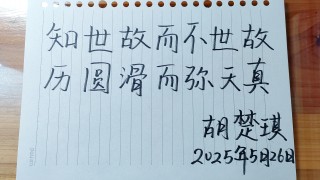 知世故而不世故
历圆滑而弥天真
胡楚琪
2025年5月26日